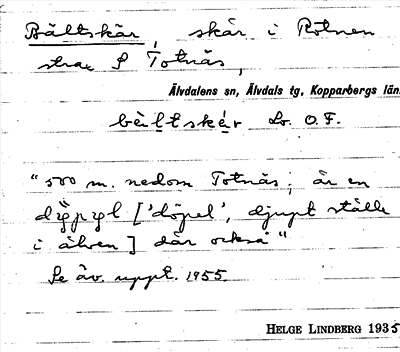 Bältskär, skär i Rotnen
strax S Totnäs,
Älvdalens sn, Älvdals tg, Kopparbergs län.
bèḷtskẹ́r Lo. O.F.
"500 m. nedom Totnäs; är en
dỳpyl ['döpel', djupt ställe
i älven] där också"
Se äv. uppt. 1955.
HELGE LINDBERG 1935